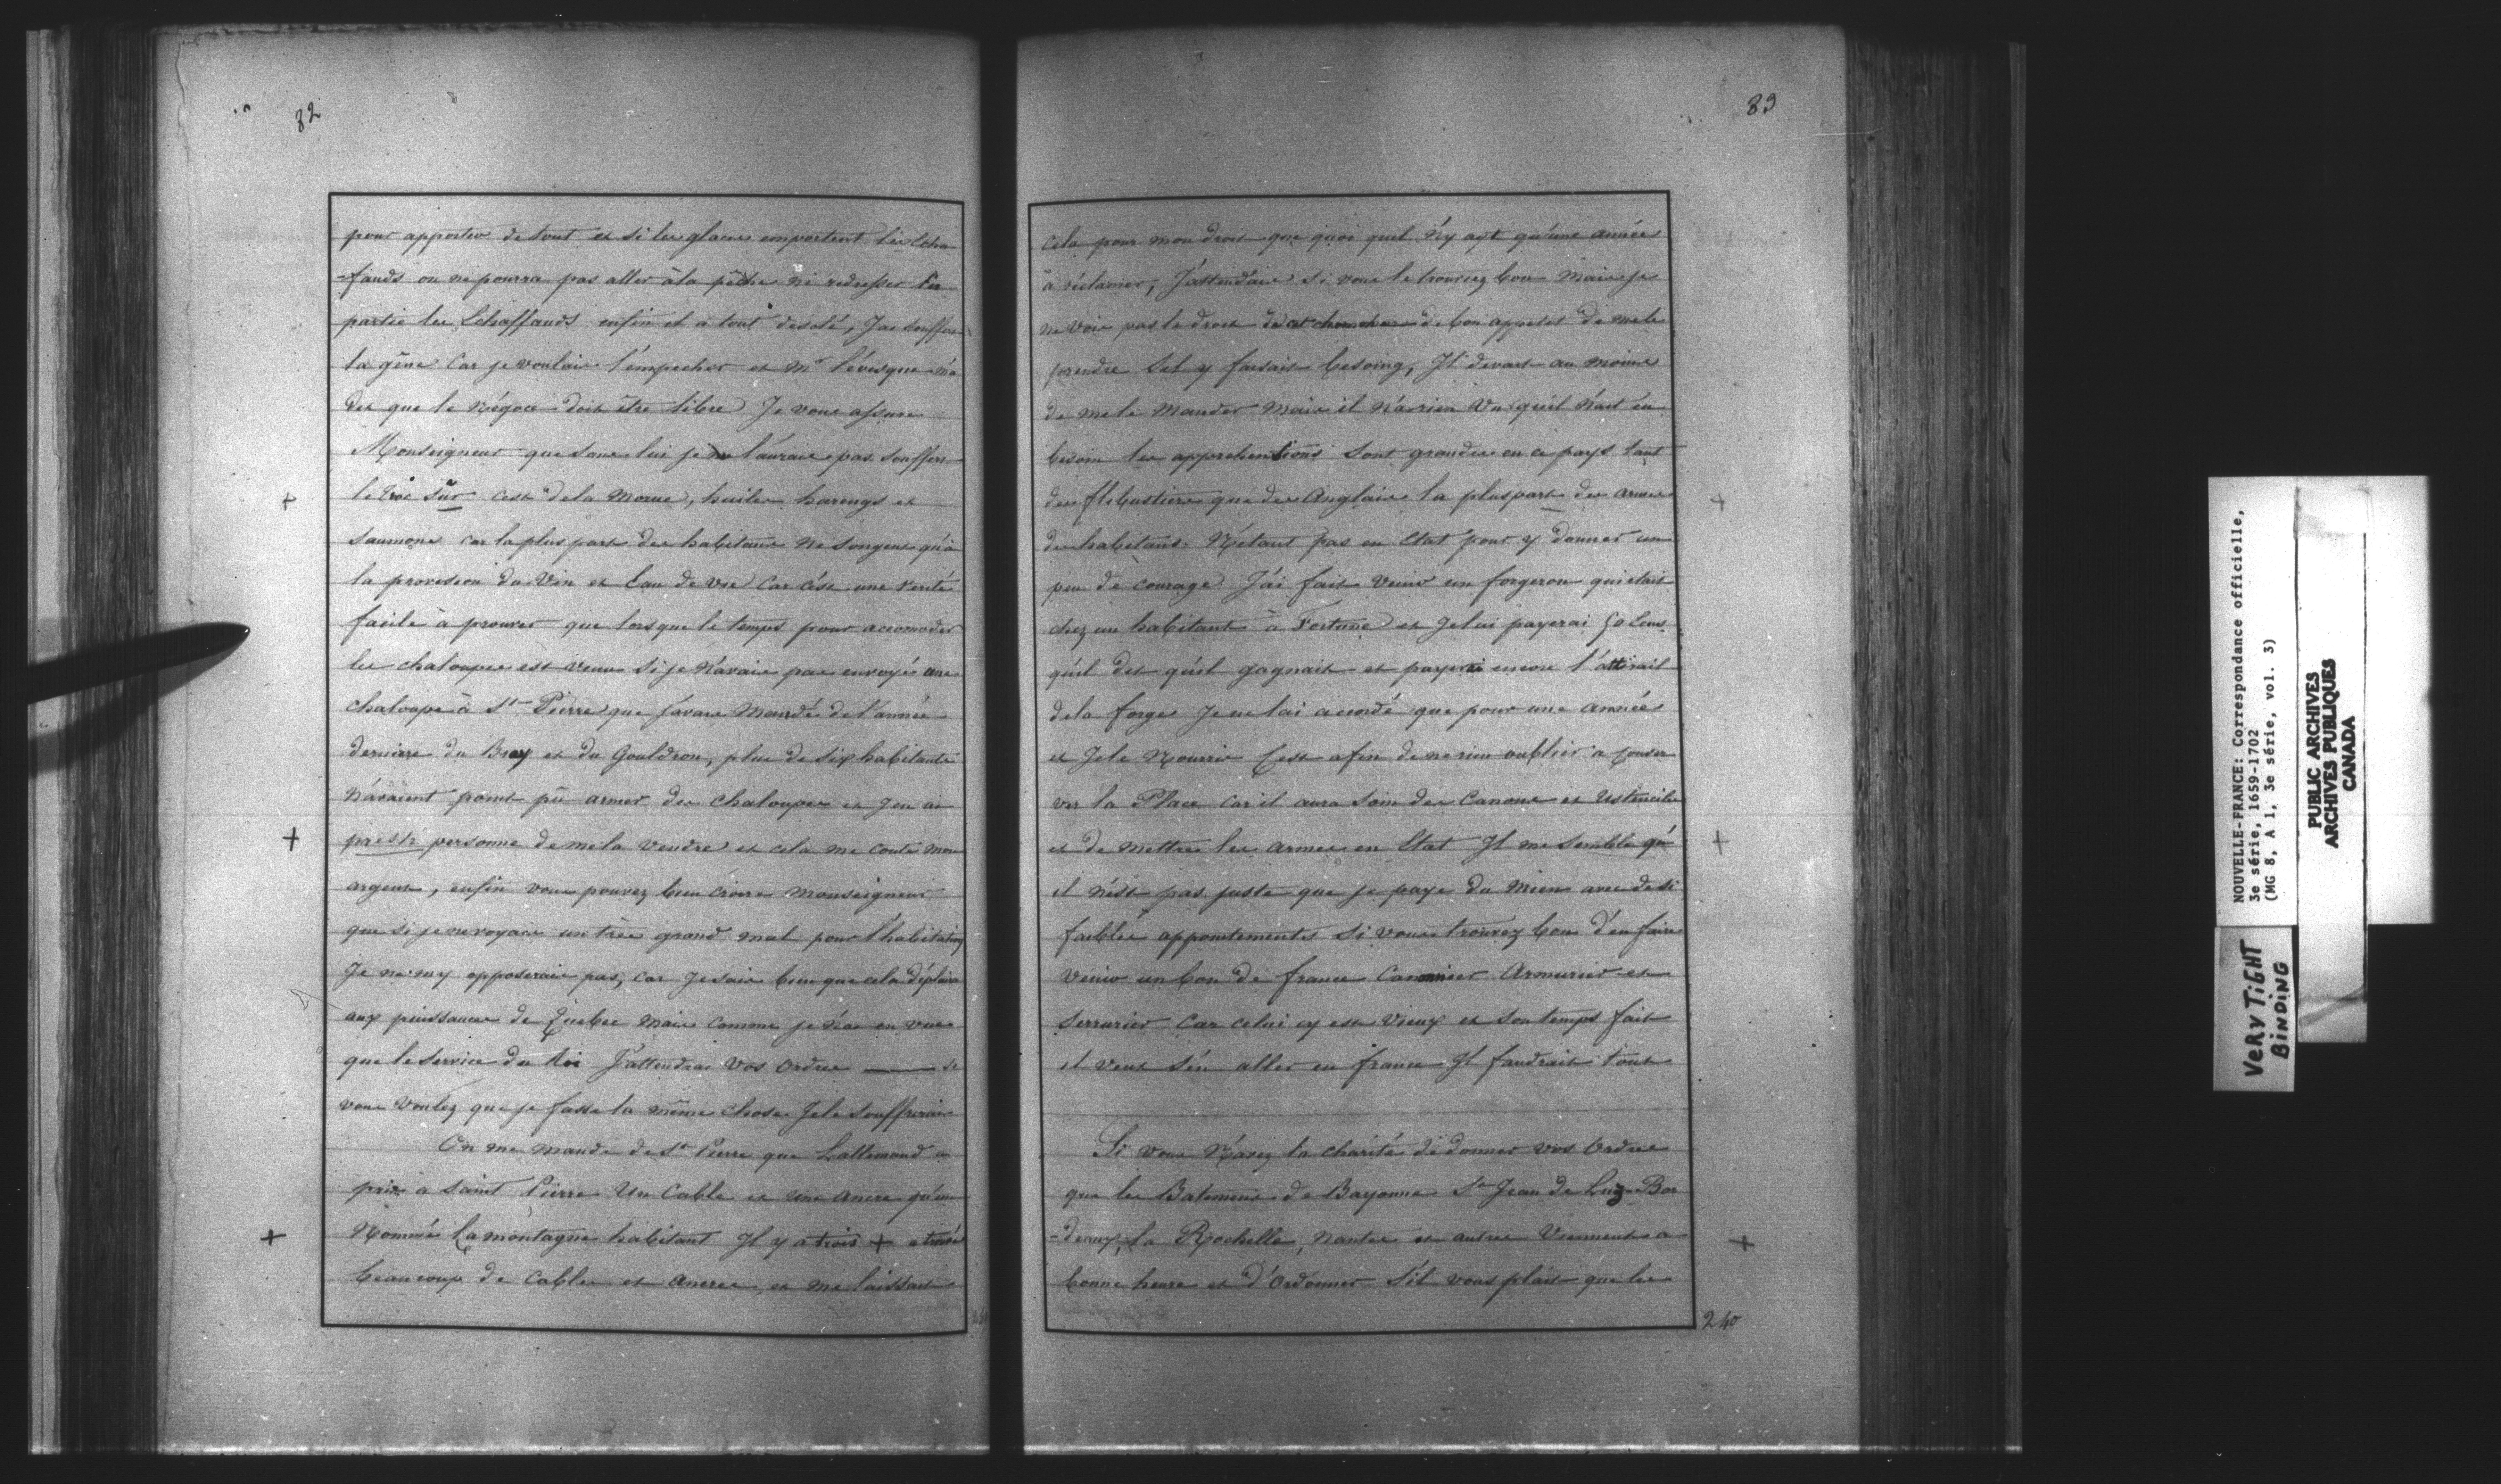 82
pour apporter de tout et si les glaces emportent les Echa
-fauds on ne pourra pas aller à la pêche ni redresser en
partie les Echaffauds enfin et à tout desolé, J'ai souffert
la gêne Car je voulais l'empecher et Mr l'évesque m'a
dit que le Négoce doit être libre Je vous assure
Monseigneur que sans lui je ne l'aurais pas souffert
le troc sur c'est de la Morue, huiles harengs et
Saumons car la plus part des habitans ne songent qu'à
la provision du Vin et Eau de vie Car c'est une verité
facile à prouver que lorsque le temps pour accomoder
les chaloupes est venu si je n'avais pas envoyé une
chaloupe à St Pierre que j'avais Mandé de l'année
derniere du Bray et du Gouldron, plus de six habitants
n'avaient point pu armer des chaloupes et j'en ai
presté personne de me la vendre et cela me coute mon
argent, enfin vous pouvez bien croire Monseigneur
que si je ne voyais un très grand mal pour l'habitation
Je ne m'y opposerais pas, car Je sais bien que cela déplaira
aux puissances de Quebec Mais comme je n'ai en vue
que le service du Roi J'attendrai Vos Ordres ——— si
vous voulez que je fasse la même chose Je le souffrirai
On me mande de St Pierre que Lallemand a
pris à Saint Pierre Un Cable et une ancre qu'un
Nommé Lamontagne habitant Il y a trois + a trouvé
beaucoup de Cables et Ancres, et me laissant
83
Cela pour mon droit que quoi quil n'y ayt qu'une année
à réclamer, J'attendais si vous le trouviez bon Mais je
ne vois pas le droit de de bon appetit de me le
prendre S'il y faisait besoing, Il devait au moins
de me le Mander Mais il n'a rien Vu qu'il n'ait eu
besoin les apprehentions sont grandes en ce pays tant
des flibustiers que des Anglais la pluspart des armes
des habitans N'étant pas en Etat pour y donner un
peu de courage J'ai fait venir un forgeron qui etait
chez un habitant à Fortune et Je lui payerai 50 Ecus
qu'il dit qu'il gagnait et payerai encore l'attirail
de la forge Je ne l'ai accordé que pour une Année
et Je le Nourris C'est afin de ne rien oublier a conser
ver la Place Car il aura soin des Canons et Ustenciles
et de mettre les armes en Etat Il me semble qu'
il n'est pas juste que je paye du Mien avec de si
faibles appointements Si vous trouvez bon d'en faire
venir un bon de france Canonnier Armurier et
Serrurier Car celui cy est Vieux et son temps fait
il veut s'en aller en france Il faudrait tout
Si vous N'avez la charité de donner vos Ordres
que les Batimens de Bayonne St Jean de Luz Bor
-deaux, La Rochelle, Nantes et autres Viennent a
bonne heure et d'Ordonner S'il vous plait que les
240
NOUVELLE-FRANCE: Correspondance officielle,
3e série, 1659-1702
(MG 8, A 1, 3e série, vol. 3)
PUBLIC ARCHIVES
ARCHIVES PUBLIQUES
CANADA
VERY TIGHT
BINDING